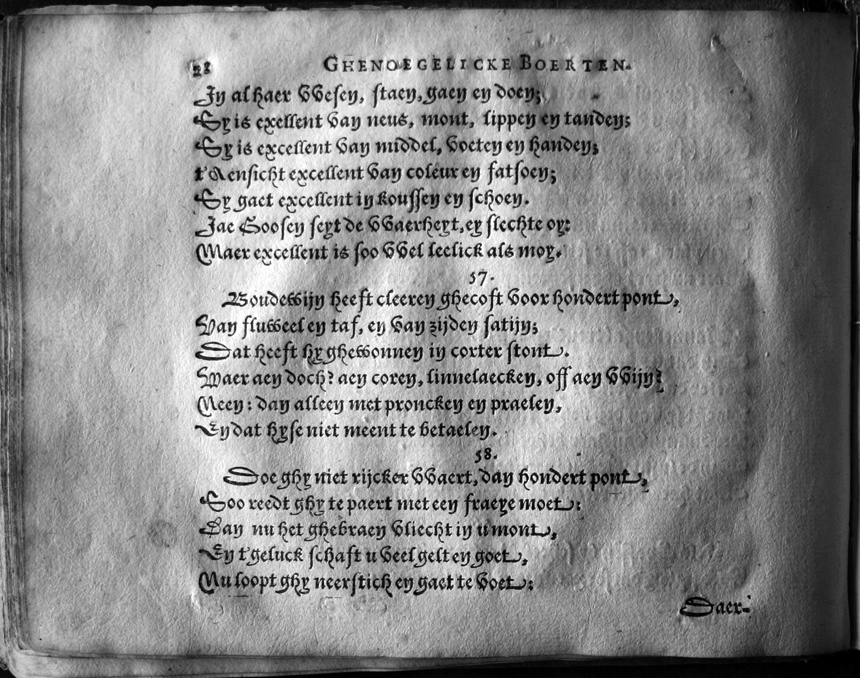 28 GHENOEGELICKE BOERTEN.
In al haer VVesen, staen, gaen en doen;
Sy is exellent van neus, mont, lippen en tanden;
Sy is excellent van middel, voeten en handen;
t'Aensicht excellent van coleur en fatsoen;
Sy gaet excellent in koussen en schoen.
Jae Goosen seyt de VVaerheyt, en slechte oy:
Maer excellent is soo VVel leelick als moy.
57.
Boudewijn heeft cleeren ghecoft voor hondert pont,
Van fluweel en taf, en van zijden satijn;
Dat heeft hy ghewonnen in corter stont.
Waer aen doch? aen coren, linnelaecken, off aen VVijn?
Neen: dan alleen met proncken en praelen,
En dat hyse niet meent te betaelen.
58.
Doe ghy niet rijcker VVaert, dan hondert pont,
Soo reedt ghy te paert met een fraeye moet:
Dan nu het ghebraen vliecht in u mont,
En t'geluck schaft u veel gelt en goet,
Nu loopt ghy neerstich en gaet te voet:
Daer-